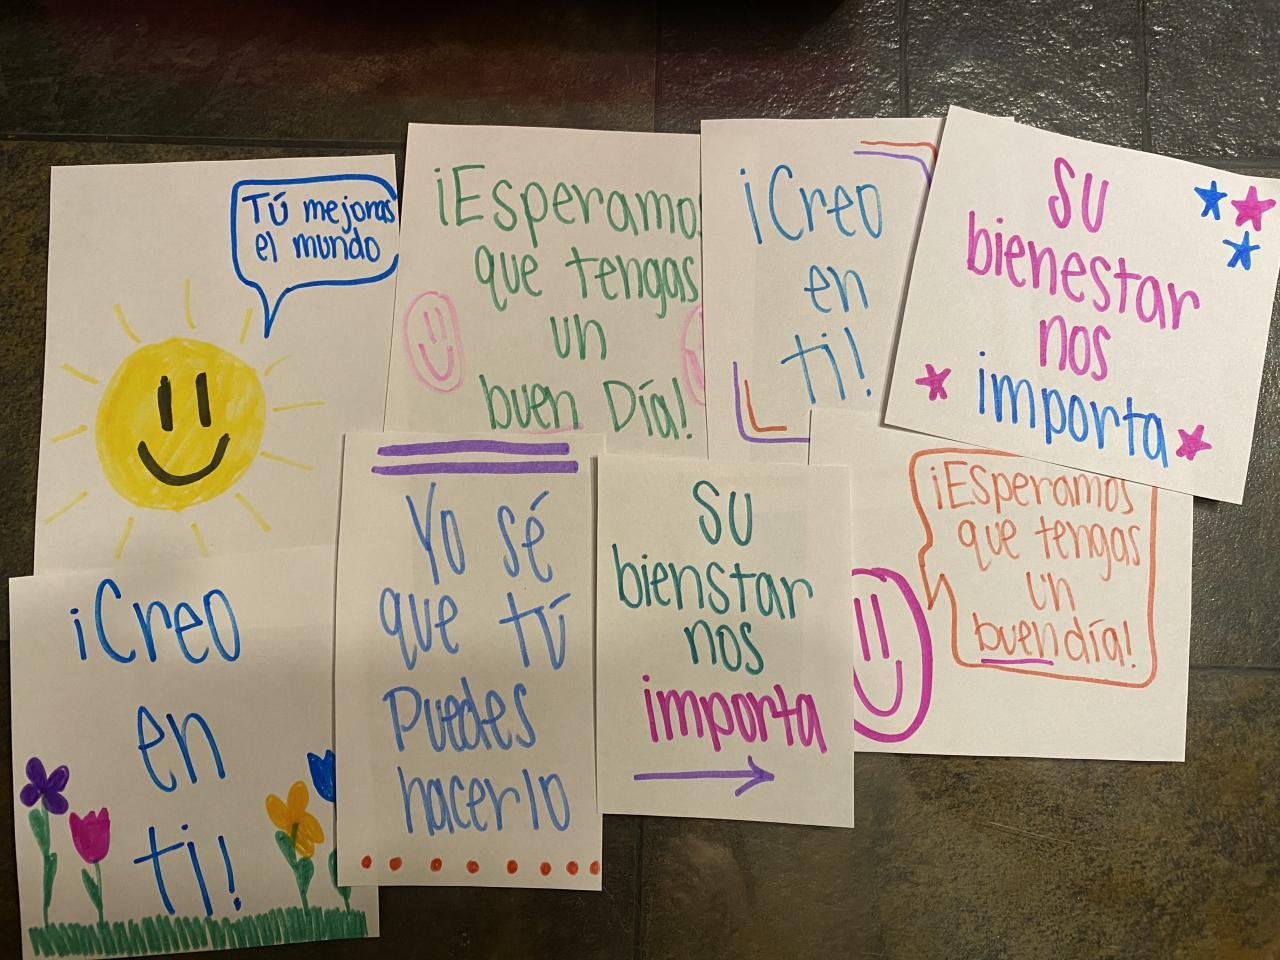 Tú mejoras
el mundo
¡Esperamos
que tengas
un
buen Día!
¡Creo
en
ti!
Su
bienestar
nos
importa
¡Creo
en
ti!
Yo sé
que tú
Puedes
hacerlo
Su
bienstar
nos
importa
¡Esperamos
que tengas
un
buen día!